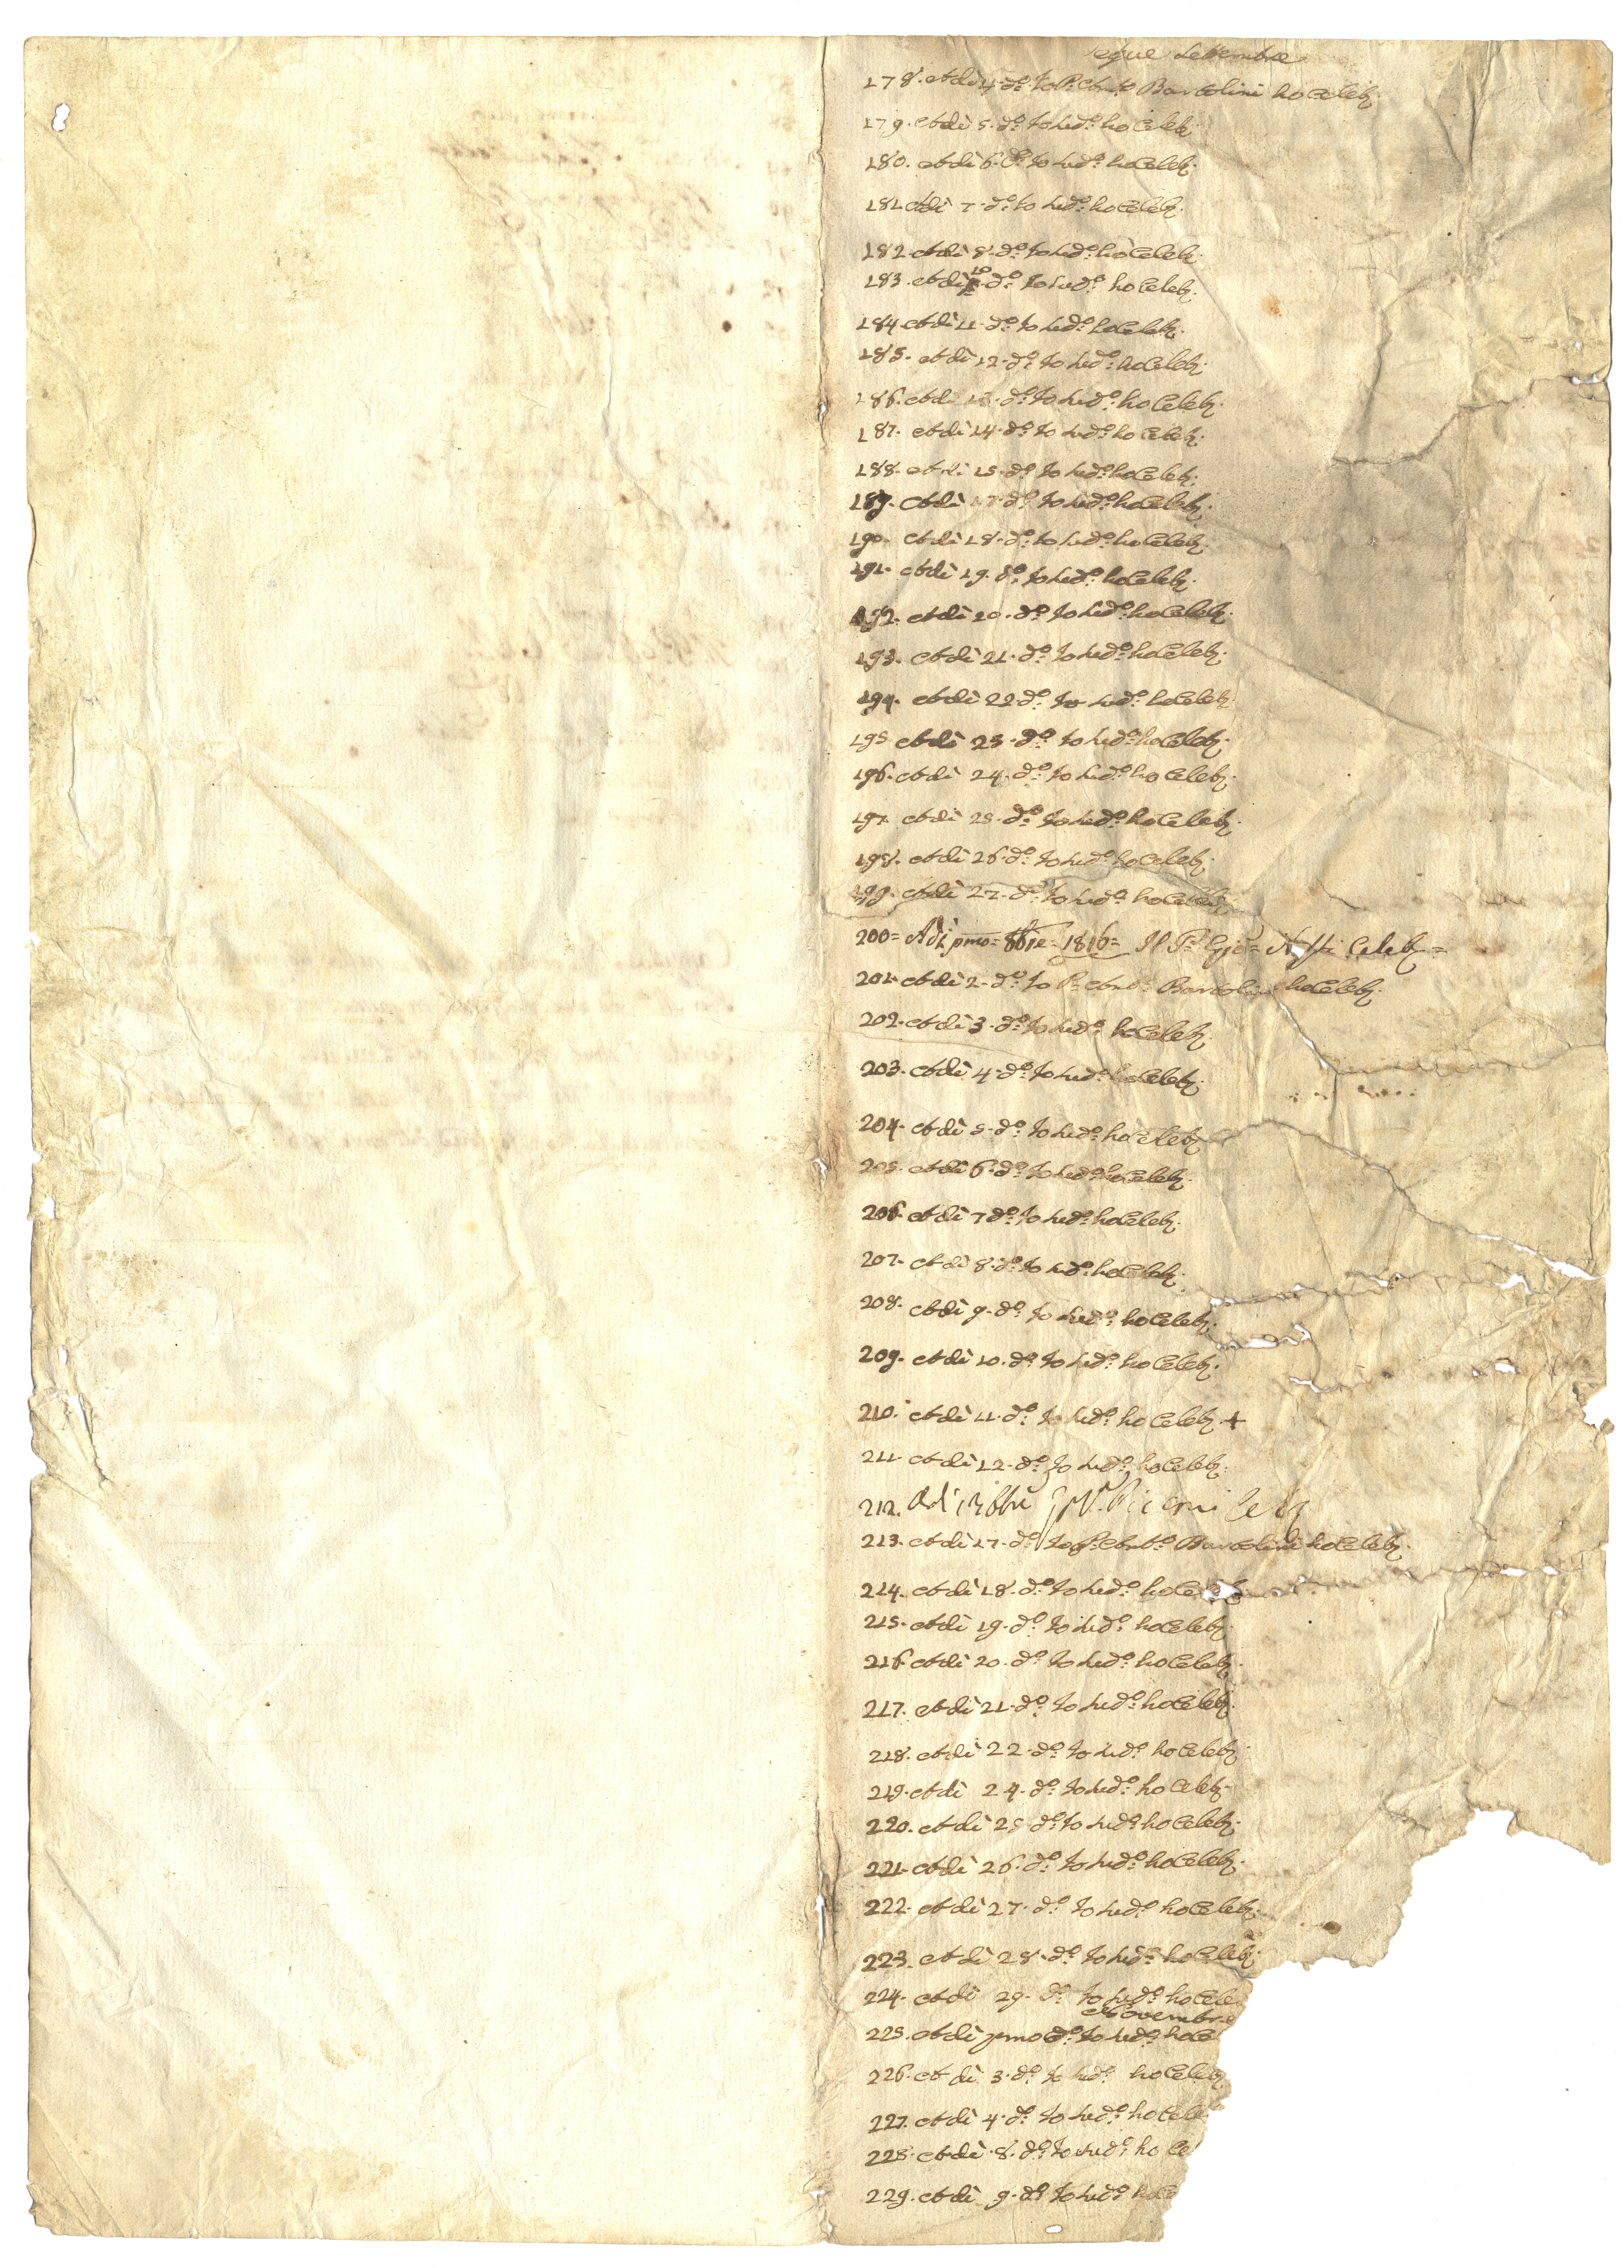 Segue Settembre
178. Adi 4. d.o Io P. Ant.o Bartolini ho Celeb.
179. Adi 5. d.o Io sud.o ho Celeb.
180. Adi 6. d.o Io sud.o ho Celeb.
181. Adi 7. d.o Io sud.o ho Celeb.
182. Adi 8. d.o Io sud.o ho Celeb.
183. Adi 10. d.o Io sud.o ho Celeb.
184. Adi 11. d.o Io sud.o ho Celeb.
185. Adi 12. d.o Io sud.o ho Celeb.
186. Adi 13. d.o Io sud.o ho Celeb.
187. Adi 14. d.o Io sud.o ho Celeb.
188. Adi 15. d.o Io sud.o ho Celeb.
189. Adi 17. d.o Io sud.o ho Celeb.
190. Adi 18. d.o Io sud.o ho Celeb.
191. Adi 19. d.o Io sud.o ho Celeb.
192. Adi 20. d.o Io sud.o ho Celeb.
193. Adi 21. d.o Io sud.o ho Celeb.
194. Adi 22. d.o Io sud.o ho Celeb.
195. Adi 23. d.o Io sud.o ho Celeb.
196. Adi 24. d.o Io sud.o ho Celeb.
197. Adi 25. d.o Io sud.o ho Celeb.
198. Adi 26. d.o Io sud.o ho Celeb.
199. Adi 27. d.o Io sud.o ho Celeb.
200= Adi pmo= 8bre= 1816= Il P. Gio= Celeb=
201. Adi 2. d.o Io P. Ant.o Bartolini ho Celeb.
202. Adi 3. d.o Io sud.o ho Celeb.
203. Adi 4. d.o Io sud.o ho Celeb.
204. Adi 5. d.o Io sud.o ho Celeb.
205. Adi 6. d.o Io sud.o ho Celeb.
206. Adi 7 d.o Io sud.o ho Celeb.
207. Adi 8. d.o Io sud.o ho Celeb.
208. Adi 9. d.o Io sud.o ho Celeb.
209. Adi 10. d.o Io sud.o ho Celeb.
210. Adi 11. d.o Io sud.o ho Celeb. +
211. Adi 12. d.o Io sud.o ho Celeb.
212. Adi 13 8bre Celeb
213. Adi 17. d.o Io P. Ant.o Bartolini ho Celeb.
214. Adi 18. d.o Io sud.o ho Celeb
215. Adi 19. d.o Io sud.o ho Celeb.
216. Adi 20. d.o Io sud.o ho Celeb.
217. Adi 21. d.o Io sud.o ho Celeb.
218. Adi 22. d.o Io sud.o ho Celeb.
219. Adi 24. d.o Io sud.o ho Celeb.
220. Adi 25 d.o Io sud.o ho Celeb.
221. Adi 26. d.o Io sud.o ho Celeb.
222. Adi 27. d.o Io sud.o ho Celeb.
223. Adi 28. d.o Io sud.o ho Celeb.
224. Adi 29. d.o Io sud.o ho Cele
Novembre
225. Adi pmo d.o Io sud.o ho Ce
226. Adi 3. d.o Io sud.o ho Celeb
227. Adi 4. d.o Io sud.o ho Cele
228. Adi 8. d.o Io sud.o ho Ce
229. Adi 9. d.o Io sud.o ho Ce